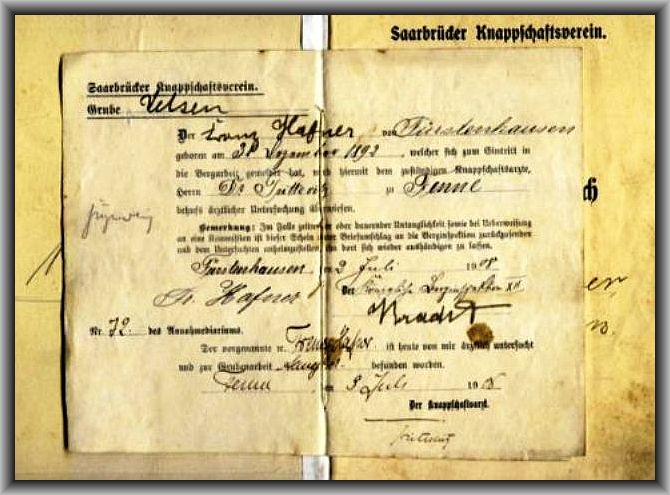 Saarbrücker Knappschaftsverein.
Saarbrücker Knappschaftsverein.
Grube Velsen
Der Franz Hafner von Fürstenhausen
geboren am 31 Dezember 1892, welcher sich zum Eintritt in
die Bergarbeit gemeldet hat, wird hiermit dem zuständigen Knappschaftsarzte,
Herrn Dr zu Fenne
behufs ärztlicher Untersuchung überwiesen.
Bemerkung: Im Falle zeitweiser oder dauernder Untauglichkeit sowie bei Ueberweisung
an eine Kommission ist dieser Schein unter Briefumschlag an die Berginspektion zurückzusenden
und dem Untersuchten anheimzustellen, ihn dort sich wieder aushändigen zu lassen.
Fürstenhausen, den 2 Juli 1908
Fr. Hafner Der Königliche Berginspektion XII
Nr. 72. des Annahmediariums.
Der vorgenannte p. Franz Hafner ist heute von mir ärztlich untersucht
und zur Grubenarbeit tauglich befunden worden.
Fenne, den 3 Juli 1908
Der Knappschaftsarzt.
ch
er,
n.